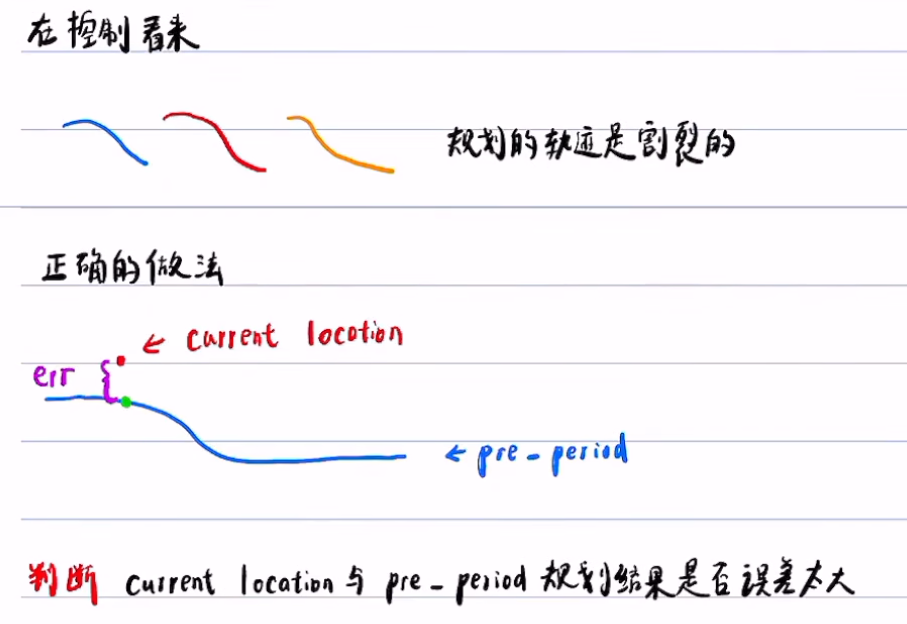 在控制看来
规划的轨迹是割裂的
正确的做法
← current location
err
← pre-period
判断 current location与 pre-period 规划结果是否误差太大